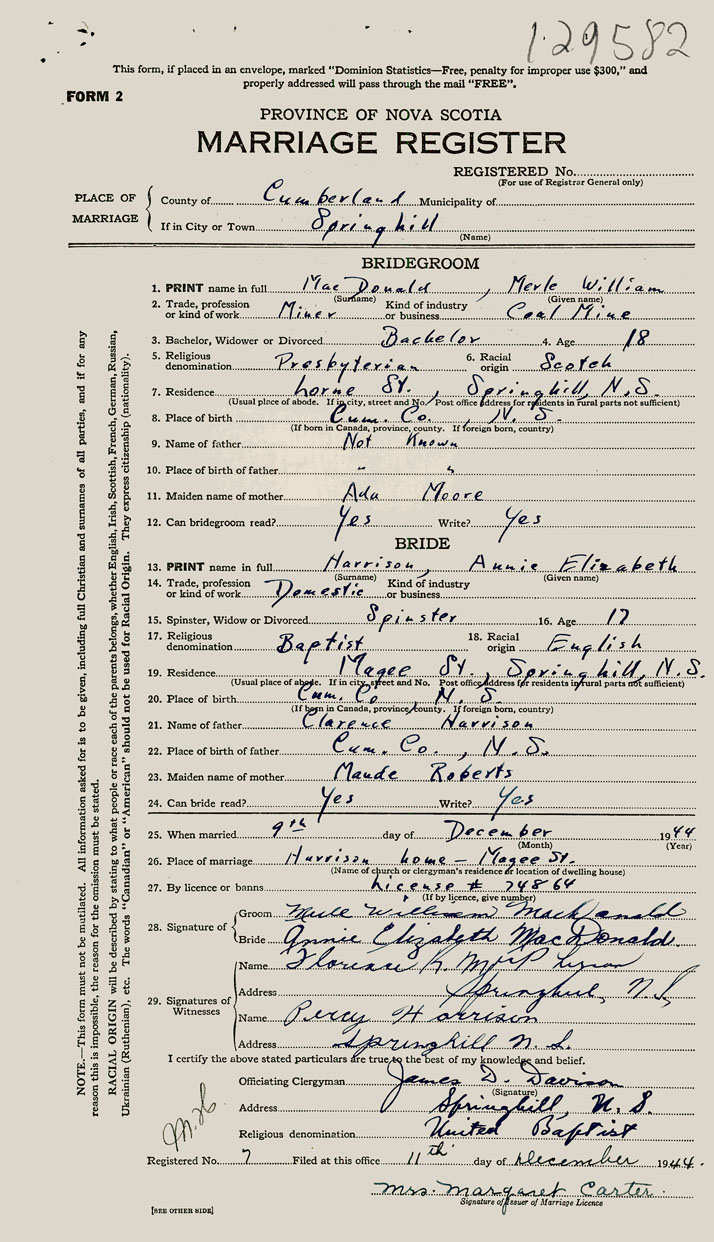 129582
This form, if placed in an envelope, marked "Dominion Statistics—Free, penalty for improper use $300," and
properly addressed will pass through the mail "FREE".
FORM 2
PROVINCE OF NOVA SCOTIA
MARRIAGE REGISTER
REGISTERED No.
(For use of Registrar General only)
PLACE OF MARRIAGE
County of Cumberland Municipality of
If in City or Town Springhill
(Name)
BRIDEGROOM
1. PRINT name in full MacDonald, Merle William
(Surname) (Given name)
2. Trade, profession or kind of work Miner Kind of industry or business Coal Mine
3. Bachelor, Widower or Divorced Bachelor 4. Age 18
5. Religious denomination Presbyterian 6. Racial origin Scotch
7. Residence Lorne St., Springhill, N.S.
(Usual place of abode. If in city, street and No. Post office address for residents in rural parts not sufficient)
8. Place of birth Cum. Co., N. S.
(If born in Canada, province, county. If foreign born, country)
9. Name of father Not Known
10. Place of birth of father " "
11. Maiden name of mother Ada Moore
12. Can bridegroom read? Yes Write? Yes
BRIDE
13. PRINT name in full Harrison, Annie Elizabeth
(Surname) (Given name)
14. Trade, profession or kind of work Domestic Kind of industry or business
15. Spinster, Widow or Divorced Spinster 16. Age 17
17. Religious denomination Baptist 18. Racial origin English
19. Residence Magee St., Springhill, N.S.
(Usual place of abode. If in city, street and No. Post office address for residents in rural parts not sufficient)
20. Place of birth Cum. Co., N. S.
(If born in Canada, province, county. If foreign born, country)
21. Name of father Clarence Harrison
22. Place of birth of father Cum. Co., N. S.
23. Maiden name of mother Maude Roberts
24. Can bride read? Yes Write? Yes
25. When married 9th day of December 1944
(Month) (Year)
26. Place of marriage Harrison home - Magee St.
(Name of church or clergyman's residence or location of dwelling house)
27. By licence or banns License # 74864
(If by licence, give number)
28. Signature of
Groom Merle William MacDonald
Bride Annie Elizabeth MacDonald
29. Signatures of Witnesses
Name Florence R.
Address Springhill, N.S,
Name Percy Harrison
Address Springhill N.S.
I certify the above stated particulars are true to the best of my knowledge and belief.
Officiating Clergyman James D. Davison
(Signature)
Address Springhill, N. S.
Religious denomination United Baptist
Registered No. 7 Filed at this office 11th day of December 1944.
Mrs. Margaret Carter.
Signature of Issuer of Marriage Licence
[SEE OTHER SIDE]
NOTE.—This form must not be mutilated. All information asked for is to be given, including full Christian and surnames of all parties, and if for any
reason this is impossible, the reason for the omission must be stated.
RACIAL ORIGIN will be described by stating to what people or race each of the parents belongs, whether English, Irish, Scottish, French, German, Russian,
Ukrainian (Ruthenian), etc. The words "Canadian" or "American" should not be used for Racial Origin. They express citizenship (nationality).